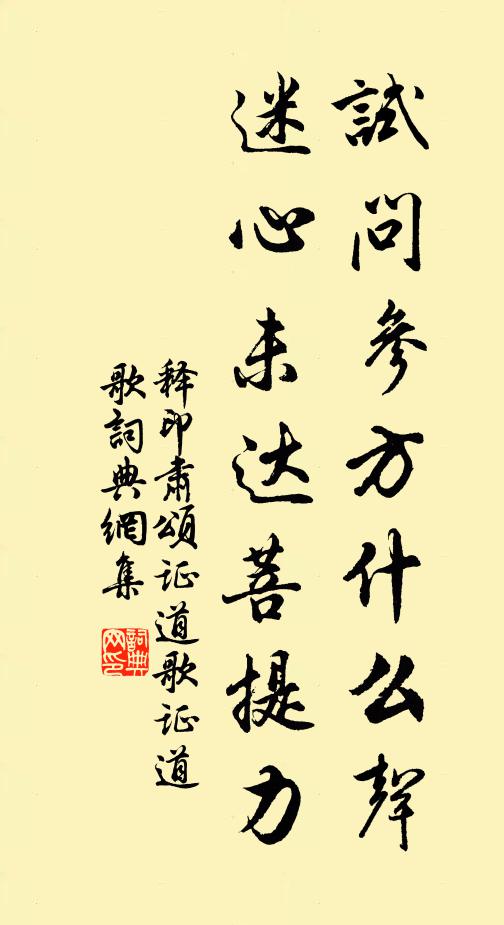 試問參方什么聲
迷心未达菩提力
释印肃頌证道歌证道
歌詞典網集
詞典
网印